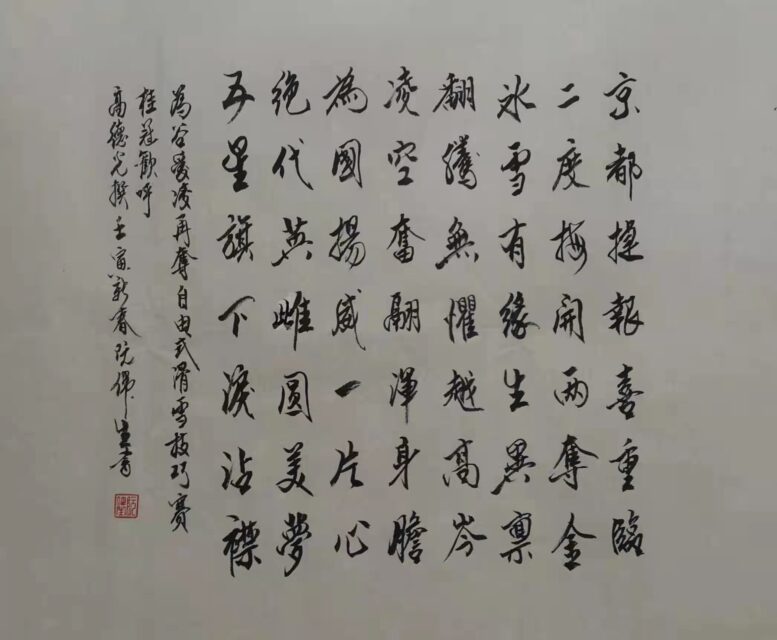 京都捷報喜重臨
二度梅開兩奪金
冰雪有緣生異禀
翻騰無懼越高岑
凌空奮翮渾身膽
為國揚威一片心
絶代英雌圓美夢
五星旗下淚沾襟
為谷愛凌再奪自由式滑雪技巧賽
桂冠歡呼
高德光撰壬寅新春阮偉生書